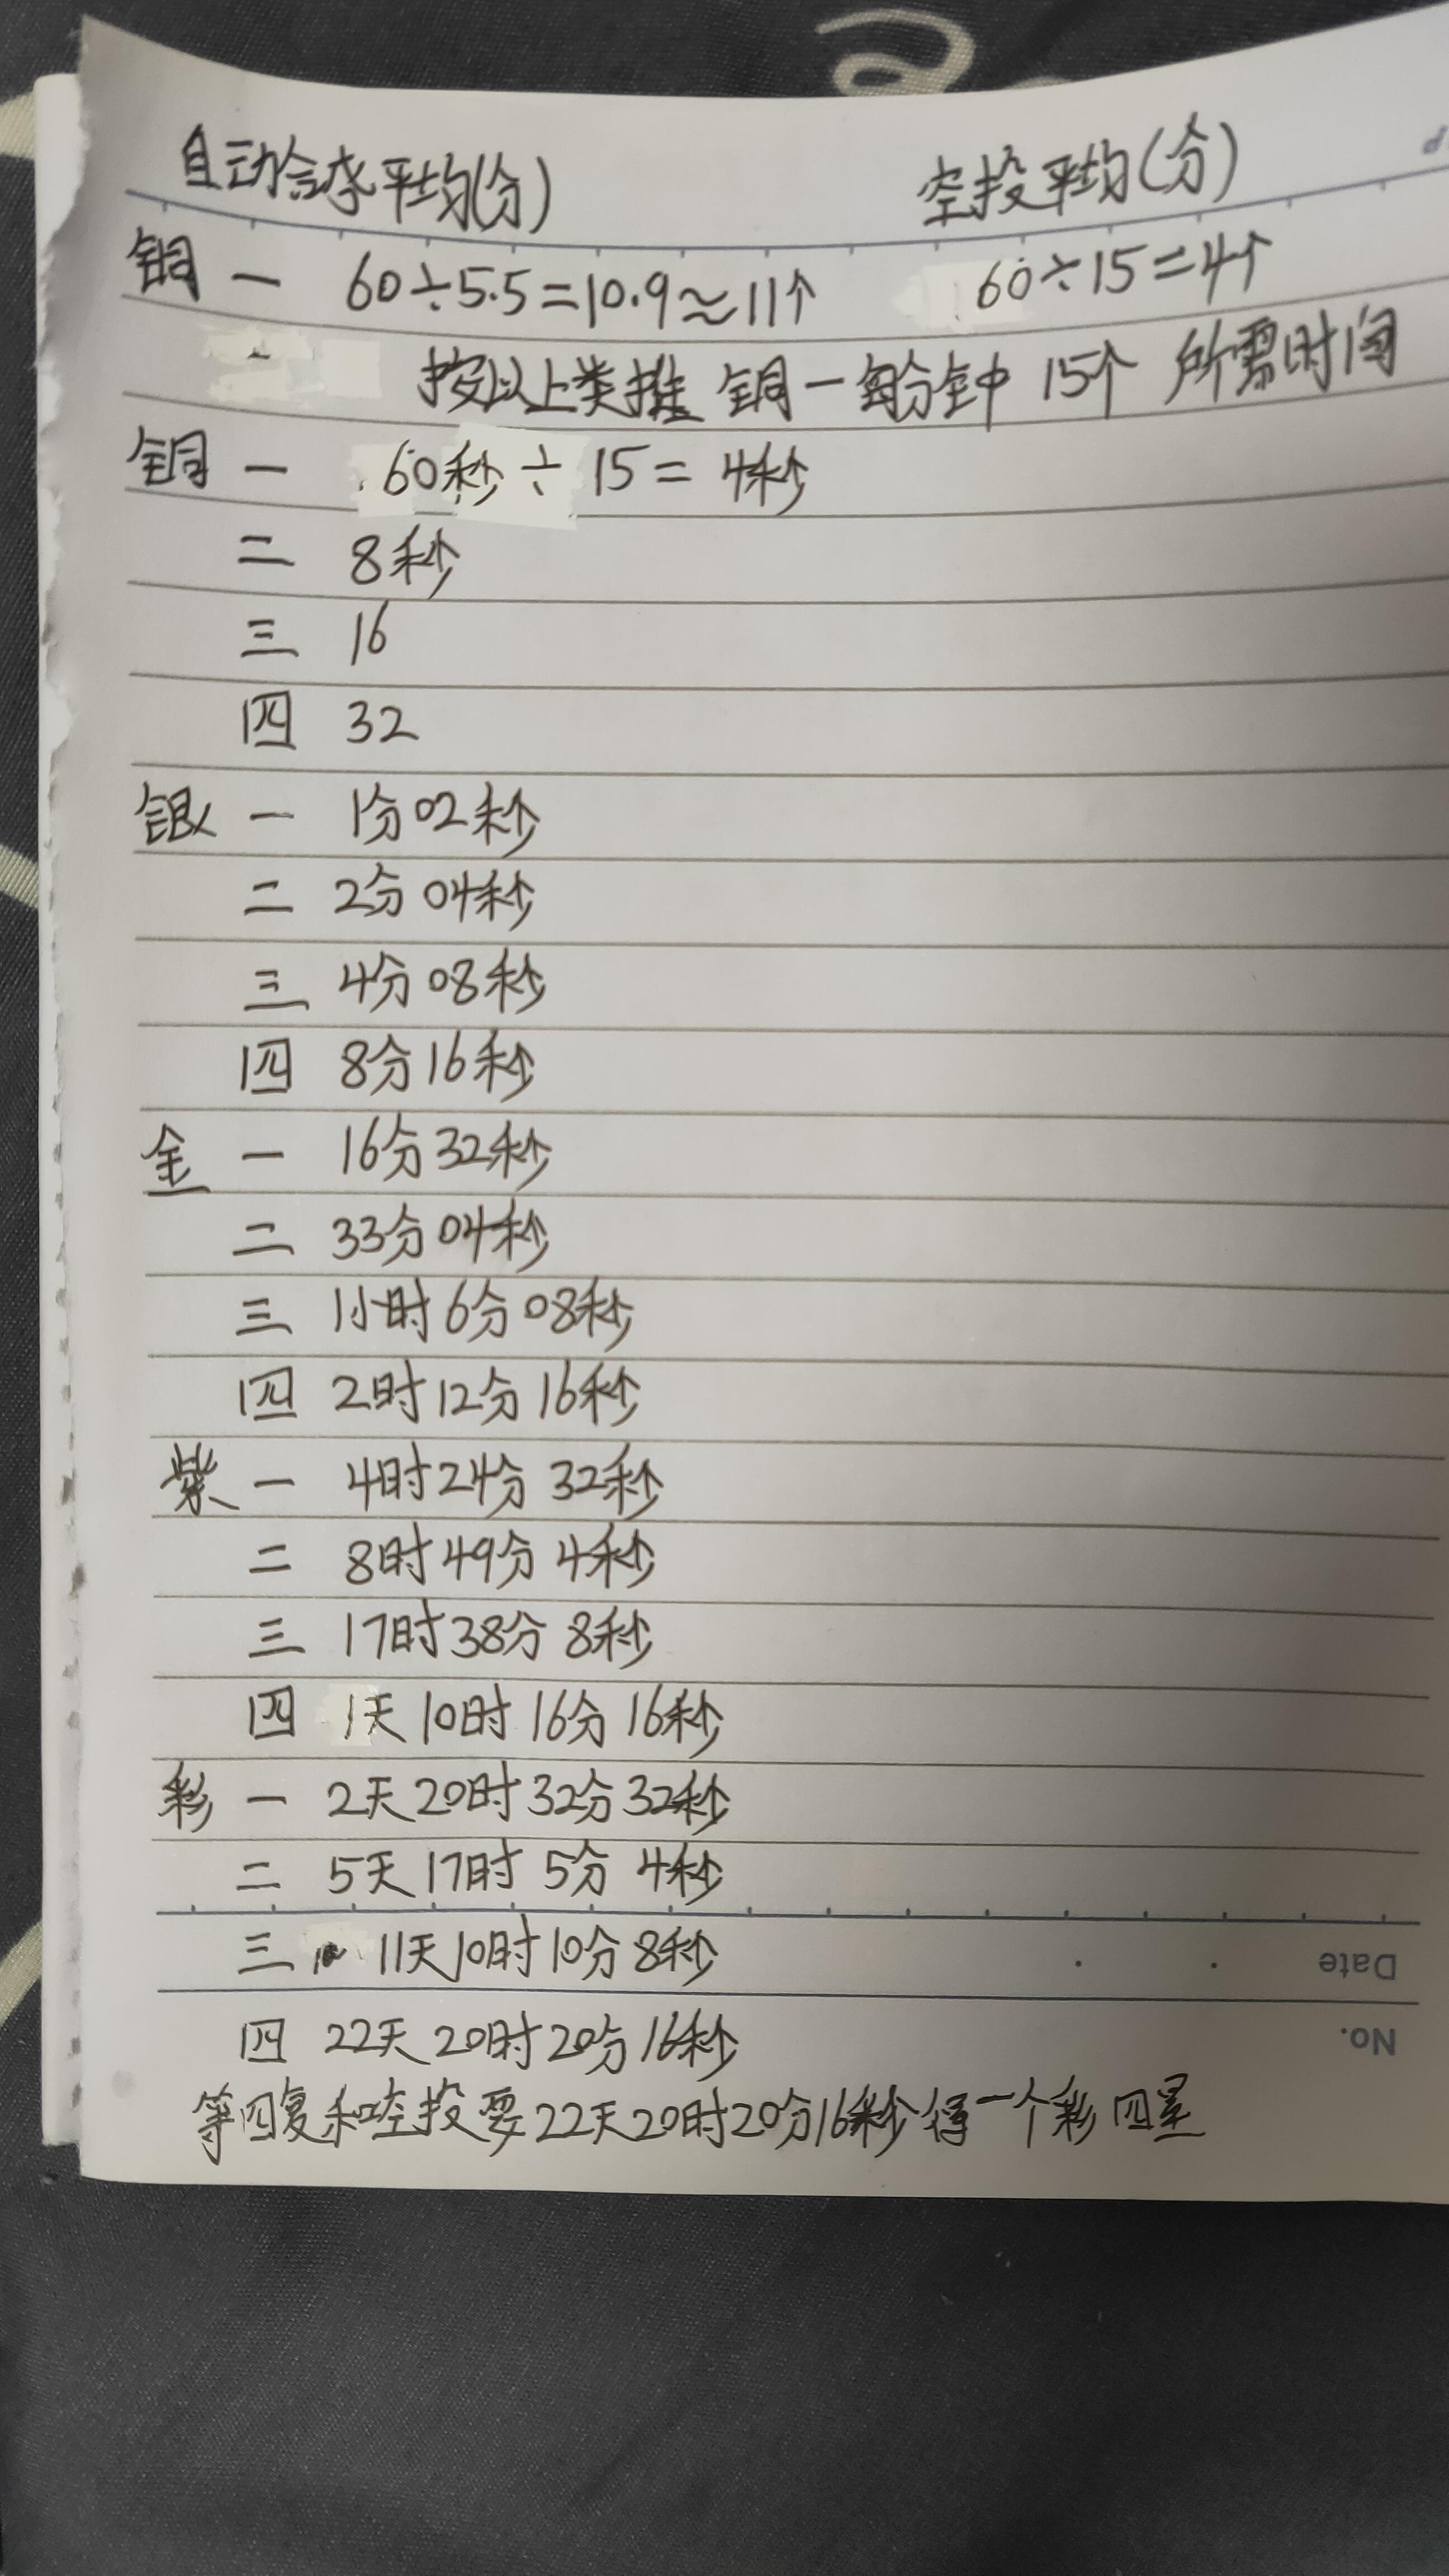 自动合成平均(分) 空投平均(分)
铜 一 60÷5.5=10.9≈11个 60÷15=4个
按以上类推 铜一每分钟 15个 所需时间
铜 一 60秒÷15=4秒
二 8秒
三 16
四 32
银 一 1分02秒
二 2分04秒
三 4分08秒
四 8分16秒
金 一 16分32秒
二 33分04秒
三 1小时6分08秒
四 2时12分16秒
紫 一 4时24分32秒
二 8时49分4秒
三 17时38分8秒
四 1天10时16分16秒
彩 一 2天20时32分32秒
二 5天17时5分4秒
三 11天10时10分8秒
Date
四 22天20时20分16秒
No.
等四复和空投要22天20时20分16秒得一个彩四星